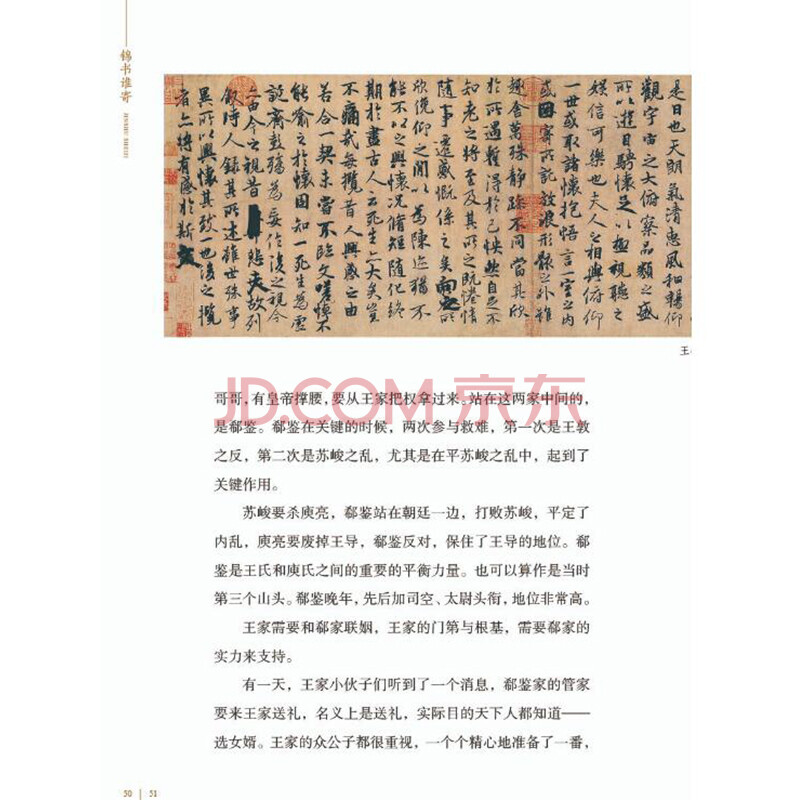 锦书谁寄
JINSHU SHUIJI
是日也天朗氣清惠風和暢仰
觀宇宙之大俯察品類之盛
所以遊目騁懷足以極視聽之
娛信可樂也夫人之相與俯仰
一世或取諸懷抱悟言一室之內
或因寄所託放浪形骸之外雖
趣舍萬殊靜躁不同當其欣
於所遇暫得於己怏然自足不
知老之將至及其所之既惓情
隨事遷感慨係之矣向之所
欣俛仰之閒以為陳迹猶不
能不以之興懷況脩短隨化終
期於盡古人云死生亦大矣豈
不痛哉每攬昔人興感之由
若合一契未嘗不臨文嗟悼不
能喻之於懷固知一死生為虛
誕齊彭殤為妄作後之視今
亦由今之視昔悲夫故列
敘時人錄其所述雖世殊事
異所以興懷其致一也後之攬
者亦將有感於斯文
王
JD.COM 京东
哥哥，有皇帝撑腰，要从王家把权拿过来。站在这两家中间的，
是郗鉴。郗鉴在关键的时候，两次参与救难，第一次是王敦
之反，第二次是苏峻之乱，尤其是在平苏峻之乱中，起到了
关键作用。
苏峻要杀庾亮，郗鉴站在朝廷一边，打败苏峻，平定了
内乱，庾亮要废掉王导，郗鉴反对，保住了王导的地位。郗
鉴是王氏和庾氏之间的重要的平衡力量。也可以算作是当时
第三个山头。郗鉴晚年，先后加司空、太尉头衔，地位非常高。
王家需要和郗家联姻，王家的门第与根基，需要郗家的
实力来支持。
有一天，王家小伙子们听到了一个消息，郗鉴家的管家
要来王家送礼，名义上是送礼，实际目的天下人都知道——
选女婿。王家的众公子都很重视，一个个精心地准备了一番，
50 | 51